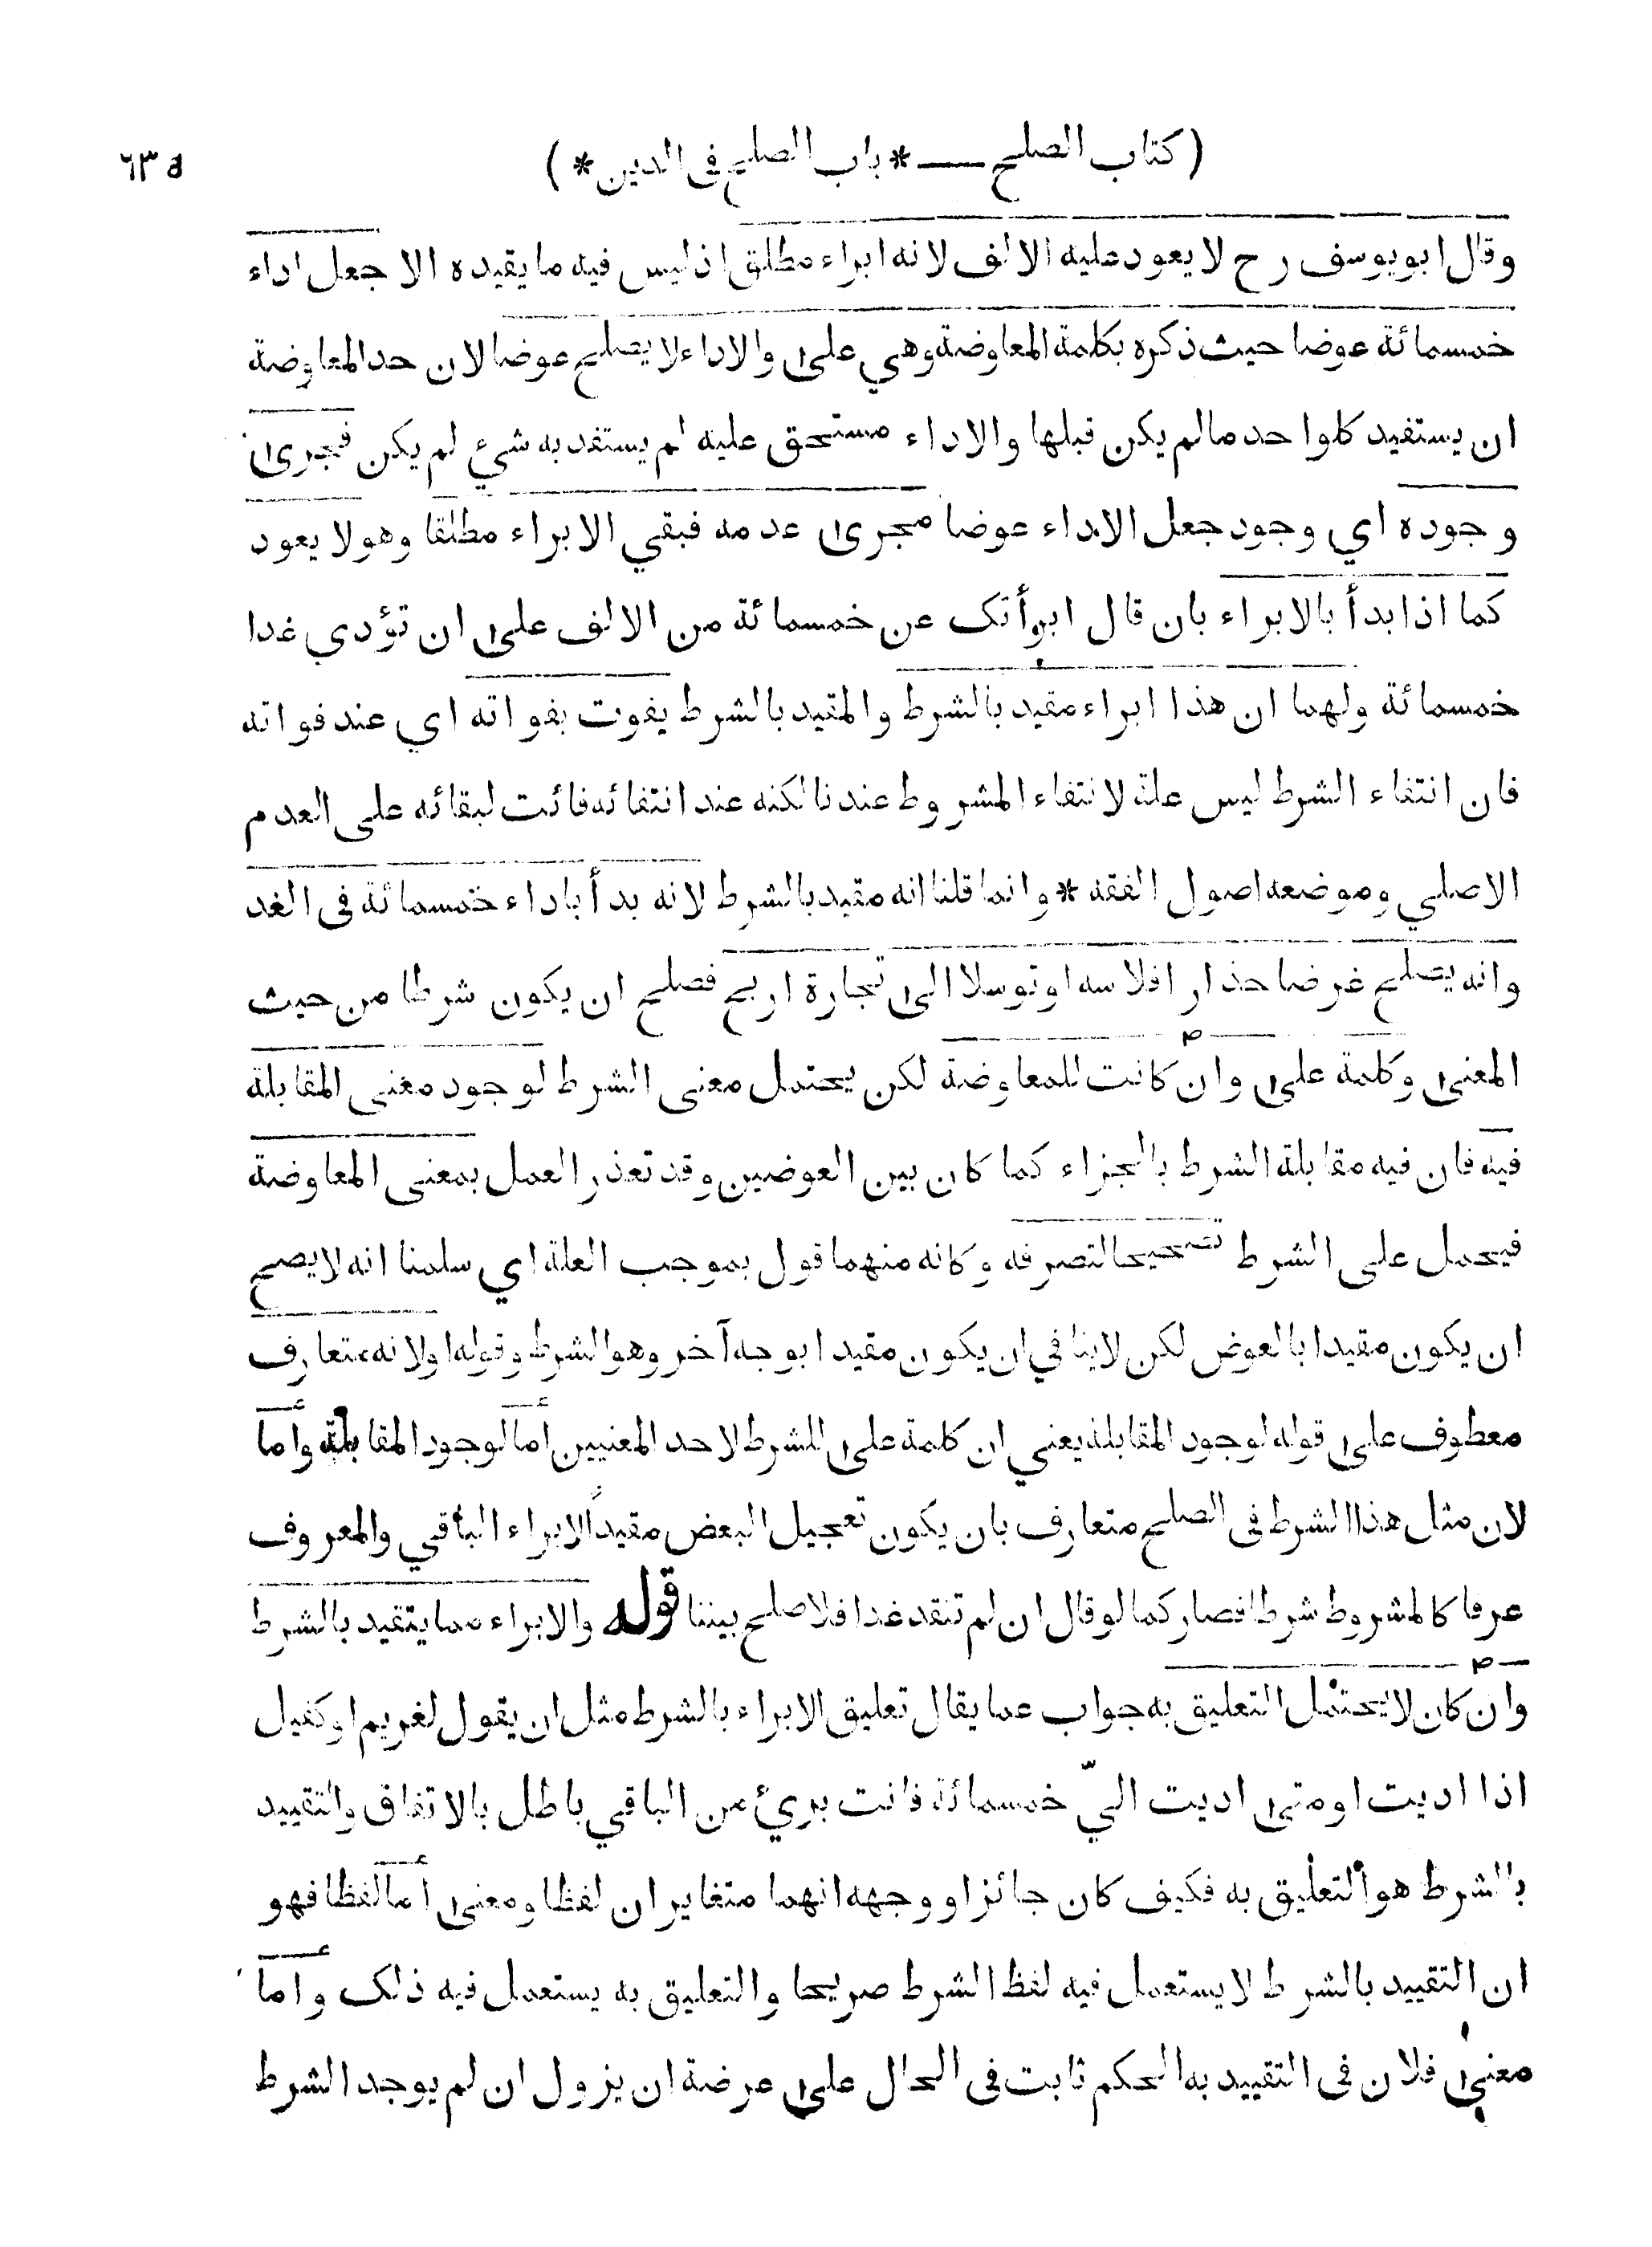 ( كتاب الصلح — * باب الصلح في الدين * )
٦٣٥
وقال ابو يوسف رح لا يعود عليه الالف لانه ابراء مطلق اذ ليس فيه ما يقيده الا جعل اداء
خمسمائة عوضا حيث ذكره بكلمة المعاوضة وهي على والاداء لا يصلح عوضا لان حد المعاوضة
ان يستفيد كلوا حد مالم يكن قبلها والاداء مستحق عليه لم يستفد به شيء لم يكن فجرى
وجوده اي وجود جعل الاداء عوضا مجرى عدمه فبقي الابراء مطلقا وهو لا يعود
كما اذا بدأ بالابراء بان قال ابرأتك عن خمسمائة من الالف على ان تؤدي غدا
خمسمائة ولهما ان هذا ابراء مقيد بالشرط والمقيد بالشرط يفوت بفواته اي عند فواته
فان انتفاء الشرط ليس علة لانتفاء المشروط عندنا لكنه عند انتفائه فائت لبقائه على العدم
الاصلي وموضعه اصول الفقه * وانما قلنا انه مقيد بالشرط لانه بدأ باداء خمسمائة في الغد
وانه يصلح غرضا حذار افلاسه او توسلا الى تجارة اربح فصلح ان يكون شرطا من حيث
المعنى وكلمة على وان كانت للمعاوضة لكن يحتمل معنى الشرط لوجود معنى المقابلة
فيه فان فيه مقابلة الشرط بالجزاء كما كان بين العوضين وقد تعذر العمل بمعنى المعاوضة
فيحمل على الشرط تصحيحا لتصرفه وكانه منهما قول بموجب العلة اي سلمنا انه لا يصح
ان يكون مقيدا بالعوض لكن لاينافي ان يكون مقيدا بوجه آخر وهو الشرط وقوله اولانه متعارف
معطوف على قوله لوجود المقابلة يعني ان كلمة على للشرط لاحد المعنيين أما لوجود المقابلة وأما
لان مثل هذا الشرط في الصلح متعارف بان يكون تعجيل البعض مقيداً لابراء الباقي والمعروف
عرفا كالمشروط شرطا فصار كما لو قال ان لم تنقد غدا فلا صلح بيننا قوله والابراء مما يتقيد بالشرط
وان كان لا يحتمل التعليق به جواب عما يقال تعليق الابراء بالشرط مثل ان يقول لغريم او كفيل
اذا اديت او متى اديت اليّ خمسمائة فانت بريئ من الباقي باطل بالاتفاق والتقييد
بالشرط هو التعليق به فكيف كان جائزا و وجهه انهما متغايران لفظا ومعنى أما لفظا فهو
ان التقييد بالشرط لا يستعمل فيه لفظ الشرط صريحا والتعليق به يستعمل فيه ذلك واما
معنى فلان في التقييد به الحكم ثابت في الحال على عرضة ان يزول ان لم يوجد الشرط